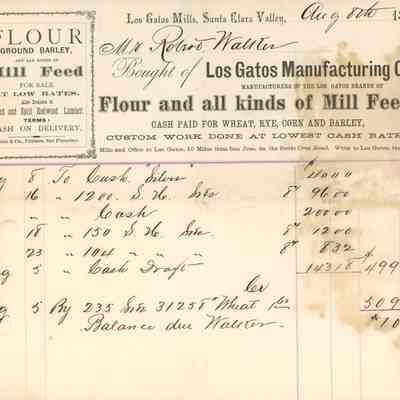 FLOUR
GROUND BARLEY,
AND ALL KINDS OF
Mill Feed
FOR SALE
AT LOW RATES.
Also Dealers in
and Split Redwood Lumber.
TERMS:
CASH ON DELIVERY.
Los Gatos Mills, Santa Clara Valley, Aug 8th 18
Mr Robert Walker
Bought of Los Gatos Manufacturing C
MANUFACTURERS OF THE LOS GATOS BRANDS OF
Flour and all kinds of Mill Fee
CASH PAID FOR WHEAT, RYE, CORN AND BARLEY,
CUSTOM WORK DONE AT LOWEST CASH RATE
Mills and Office at Los Gatos, 10 Miles from San Jose, on the Santa Cruz Road.
8 To Cash "Silver" 4000
16 " 1200 S. H. Sks 8c 9600
" " Cash 20000
18 " 150 S. H. Sks. 8c 1200
23 " 104 " " " 8c 832
g 5 " Cash Draft 14318 499
Cr
g 5 By 235 Sks 31258 Wheat 509
Balance due Walker. 10